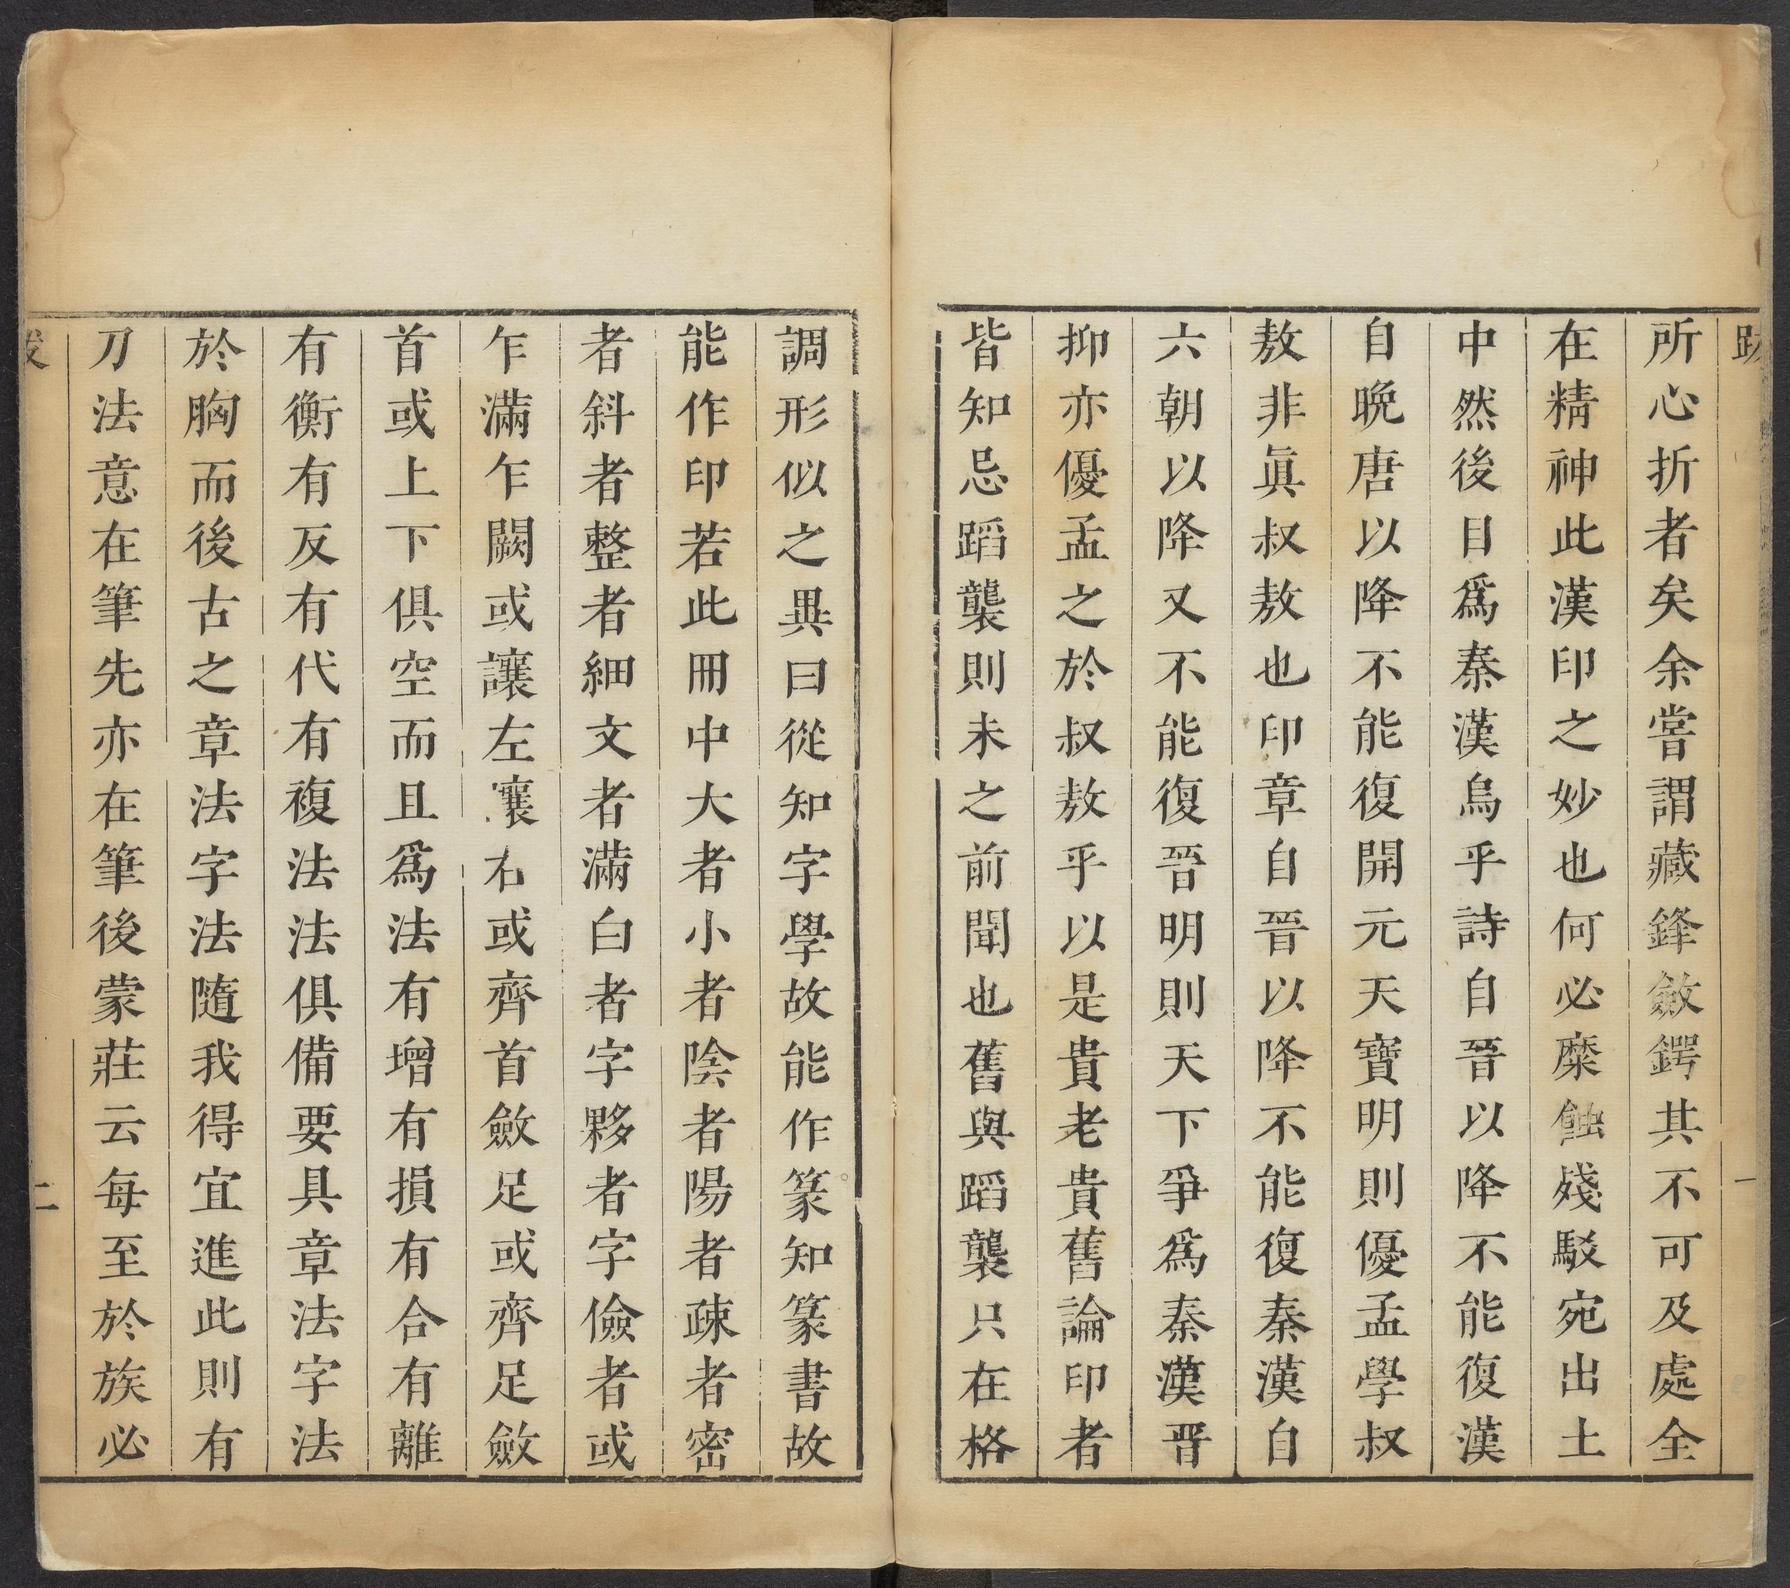 跋
一
所心折者矣余嘗謂藏鋒斂鍔其不可及處全
在精神此漢印之妙也何必糜蝕殘駁宛出土
中然後目爲秦漢烏乎詩自晉以降不能復漢
自晚唐以降不能復開元天寶明則優孟學叔
敖非眞叔敖也印章自晉以降不能復秦漢自
六朝以降又不能復晉明則天下爭爲秦漢晋
抑亦優孟之於叔敖乎以是貴老貴舊論印者
皆知忌蹈襲則未之前聞也舊與蹈襲只在格
調形似之異曰從知字學故能作篆知篆書故
能作印若此冊中大者小者陰者陽者疎者密
者斜者整者細文者滿白者字夥者字儉者或
乍滿乍闕或讓左讓右或齊首斂足或齊足斂
首或上下俱空而且爲法有增有損有合有離
有衡有反有代有複法法俱備要具章法字法
於胸而後古之章法字法隨我得宜進此則有
刀法意在筆先亦在筆後蒙莊云每至於族必
跋
二